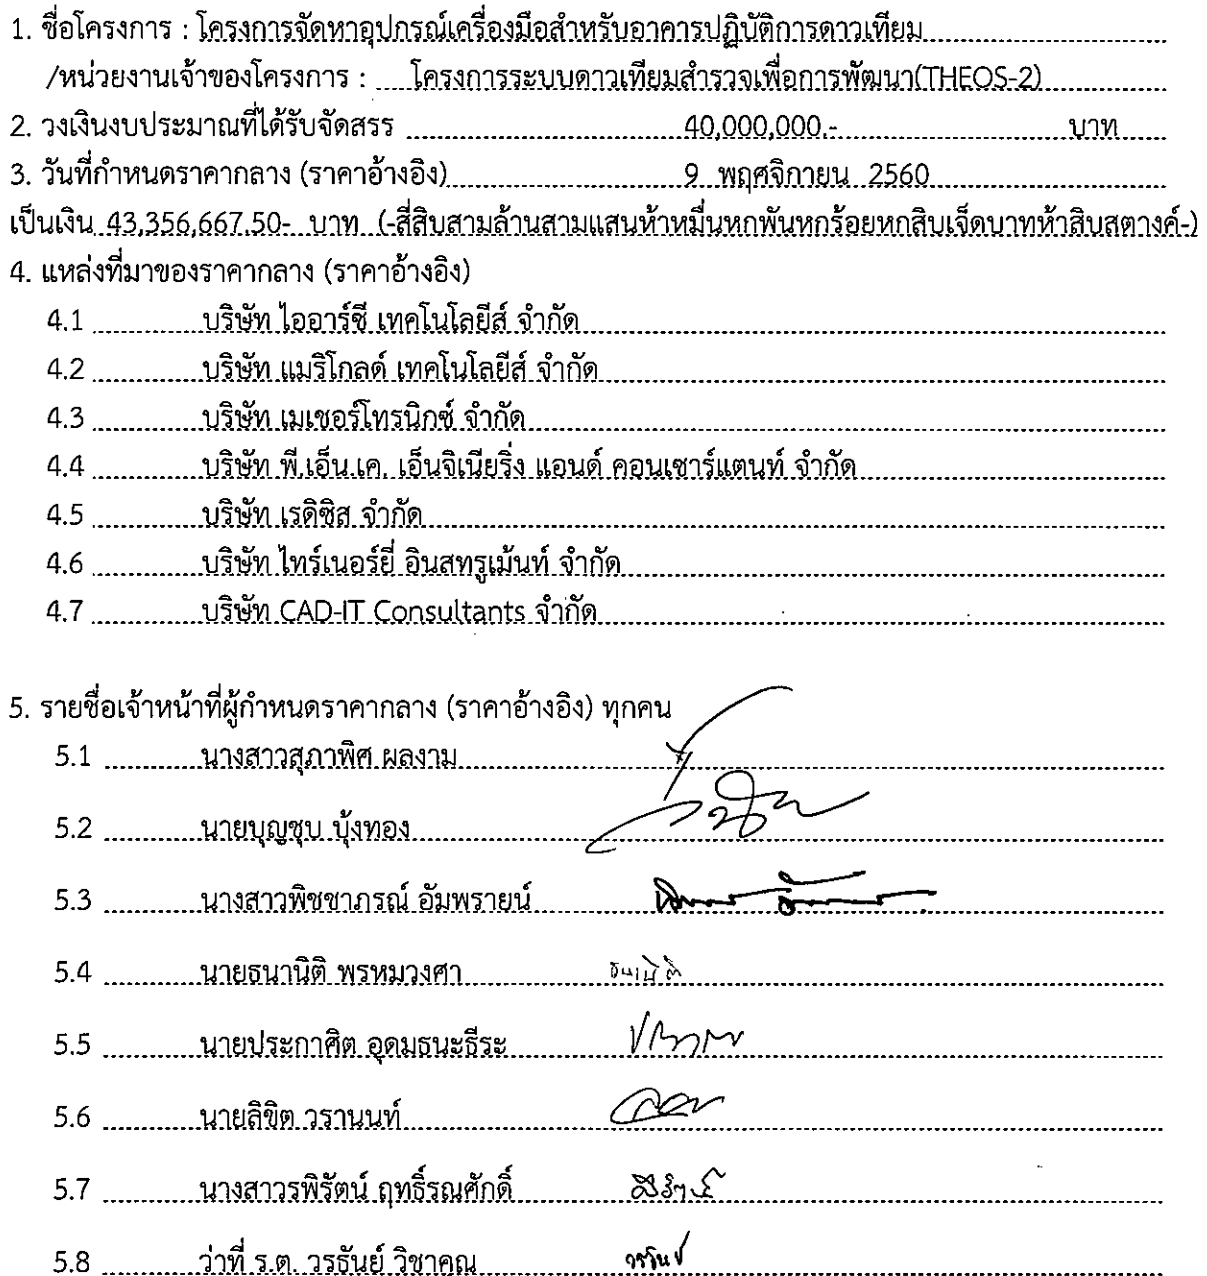 1. ชื่อโครงการ : โครงการจัดหาอุปกรณ์เครื่องมือสำหรับอาคารปฏิบัติการดาวเทียม
/หน่วยงานเจ้าของโครงการ : โครงการระบบดาวเทียมสำรวจเพื่อการพัฒนา(THEOS-2)
2. วงเงินงบประมาณที่ได้รับจัดสรร 40,000,000.- บาท
3. วันที่กำหนดราคากลาง (ราคาอ้างอิง) 9 พฤศจิกายน 2560
เป็นเงิน 43,356,667.50- บาท (-สี่สิบสามล้านสามแสนห้าหมื่นหกพันหกร้อยหกสิบเจ็ดบาทห้าสิบสตางค์-)
4. แหล่งที่มาของราคากลาง (ราคาอ้างอิง)
4.1 บริษัท ไออาร์ซี เทคโนโลยีส์ จำกัด
4.2 บริษัท แมริโกลด์ เทคโนโลยีส์ จำกัด
4.3 บริษัท เมเชอร์โทรนิกซ์ จำกัด
4.4 บริษัท พี.เอ็น.เค. เอ็นจิเนียริ่ง แอนด์ คอนเซาร์แตนท์ จำกัด
4.5 บริษัท เรดิซิส จำกัด
4.6 บริษัท ไทร์เนอร์ยี่ อินสทรูเม้นท์ จำกัด
4.7 บริษัท CAD-IT Consultants จำกัด
5. รายชื่อเจ้าหน้าที่ผู้กำหนดราคากลาง (ราคาอ้างอิง) ทุกคน
5.1 นางสาวสุภาพิศ ผลงาม
5.2 นายบุญชุบ บุ้งทอง
5.3 นางสาวพิชชาภรณ์ อัมพรายน์
5.4 นายธนานิติ พรหมวงศา ธนานิติ
5.5 นายประกาศิต อุดมธนะธีระ
5.6 นายลิขิต วรานนท์
5.7 นางสาวรพิรัตน์ ฤทธิ์รณศักดิ์
5.8 ว่าที่ ร.ต. วรธันย์ วิชาคุณ